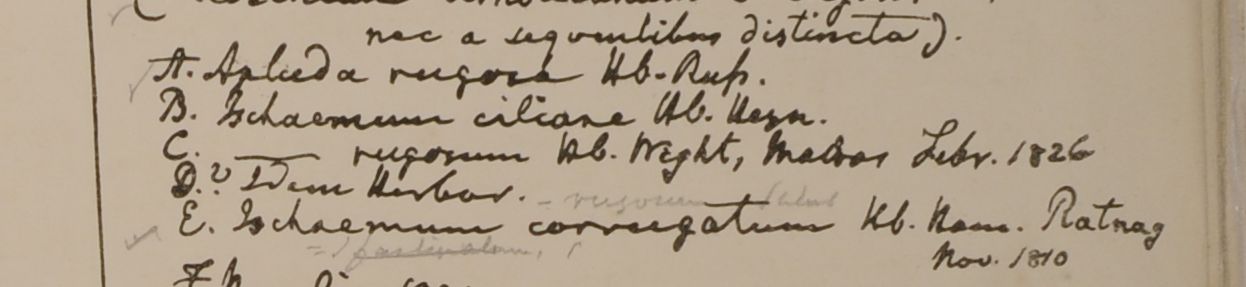 nec a sequentibus distincta).
A. Apluda rugosa Hb. Russ.
B. Ischaemum ciliare Hb. Heyn.
C. —— rugosum Hb. Wight, Madras Febr. 1826
D.? Idem Herbar. - rugosum
E. Ischaemum corrugatum Hb. Ham. Ratnag
Nov. 1810